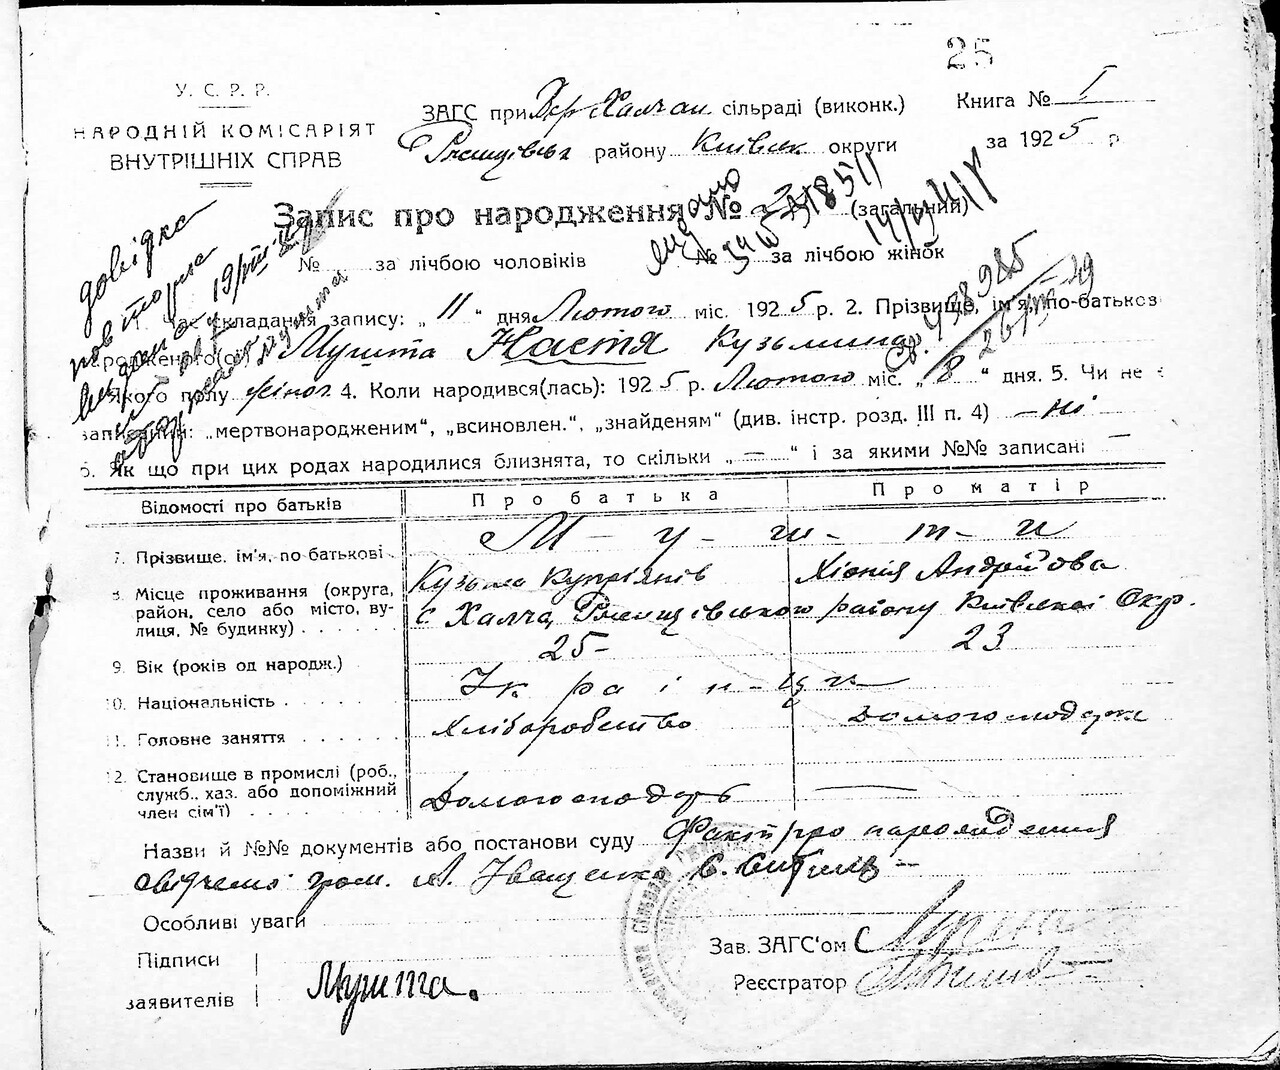 25
У. С. Р. Р.
НАРОДНІЙ КОМІСАРІЯТ
ВНУТРІШНІХ СПРАВ
ЗАГС при Халчан сільраді (виконк.)
Книга № I
Ржищівськ району Київськ округи
за 1925 р
Запис про народження № (загальний)
№ за лічбою чоловіків № за лічбою жінок
довідка
повторна
видана
19/VIII
видано
438985
складання запису: „ 11 " дня Лютого міс. 1925 р. 2. Прізвище, ім'я, по-батькові
народженого(ої) Мушта Настя Кузьмина
якого полу жіноч. 4. Коли народився(лась): 1925 р. Лютого міс. „ 8 " дня. 5. Чи не є
записаний: „мертвонародженим", „всиновлен.", „знайденям" (див. інстр. розд. III п. 4) – ні
6. Як що при цих родах народилися близнята, то скільки „ — " і за якими №№ записані —
Відомості про батьків
Про батька
Про матір
7. Прізвище, ім'я, по батькові
М - у - ш - т - и
Кузьма Купріянів
Хіонія Андрійова
8. Місце проживання (округа, район, село або місто, вулиця, № будинку)
с. Халча Ржищівського району Київської Окр.
9. Вік (років од народж.)
25 -
23
10. Національність
Українци
11. Головне заняття
Хліборобство
Домогосподарка
12. Становище в промислі (роб., служб., хаз. або допоміжний член сім'ї)
Домогосподарь
—
Назви й №№ документів або постанови суду Факт про народження
свідчено гром. Іващенко
Особливі уваги
Підписи
заявителів
Мушта.
Зав. ЗАГС'ом
Реєстратор